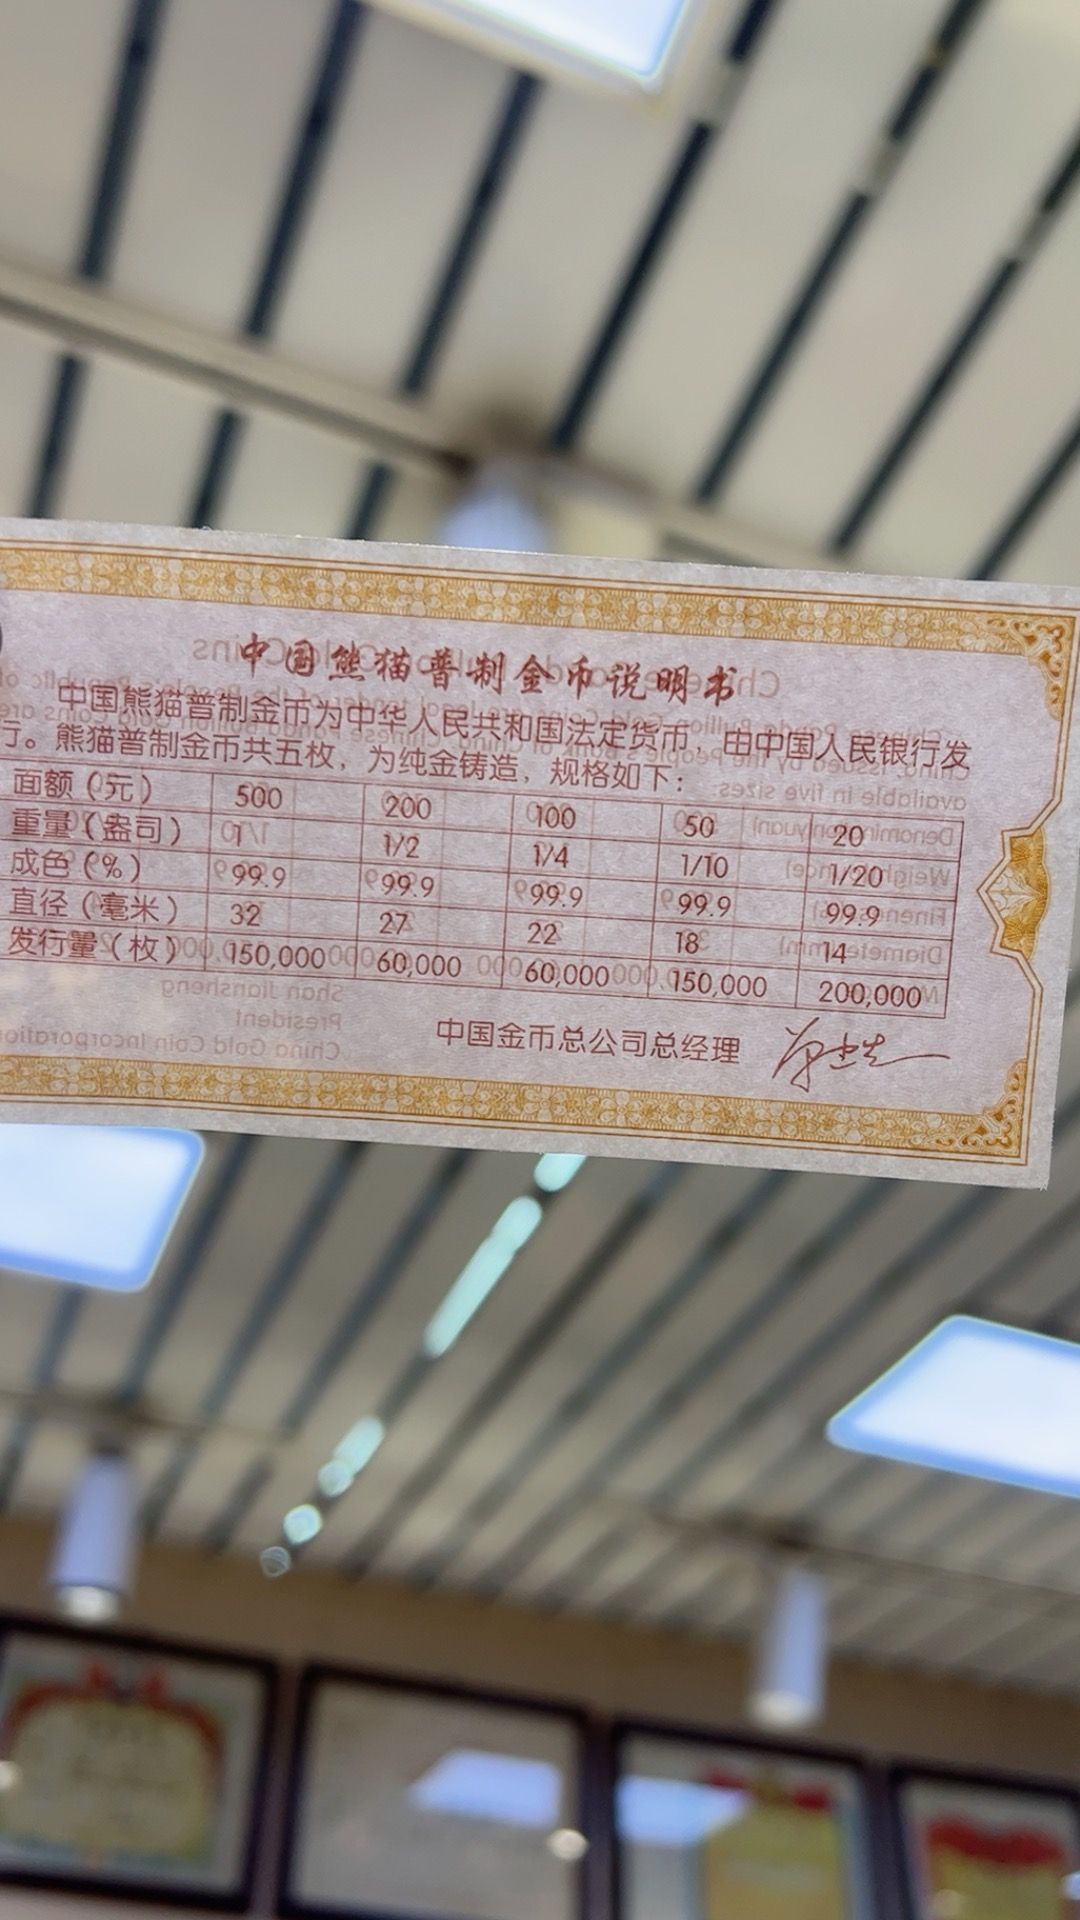 中国熊猫普制金币说明书
中国熊猫普制金币为中华人民共和国法定货币，由中国人民银行发
行。熊猫普制金币共五枚，为纯金铸造，规格如下：
面额（元） 500 200 100 50 20
重量（盎司） 1 1/2 1/4 1/10 1/20
成色（%） 99.9 99.9 99.9 99.9 99.9
直径（毫米） 32 27 22 18 14
发行量（枚） 150,000 60,000 60,000 150,000 200,000
中国金币总公司总经理
Shan Jiansheng
President
China Gold Coin Incorporation